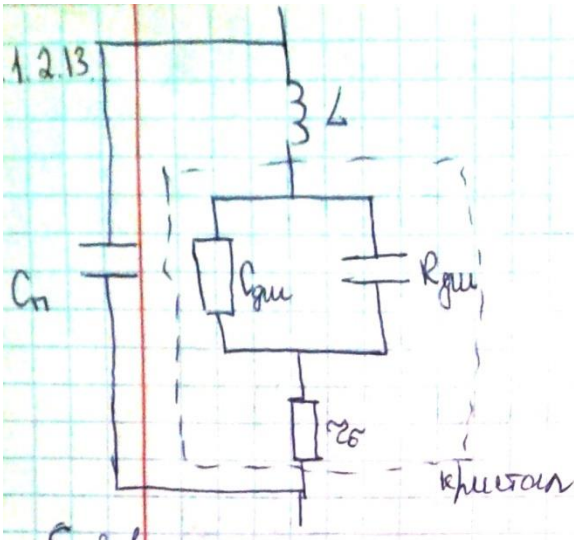 1.2.13.
L
Cп
Cдш
Rдш
rб
кристалл